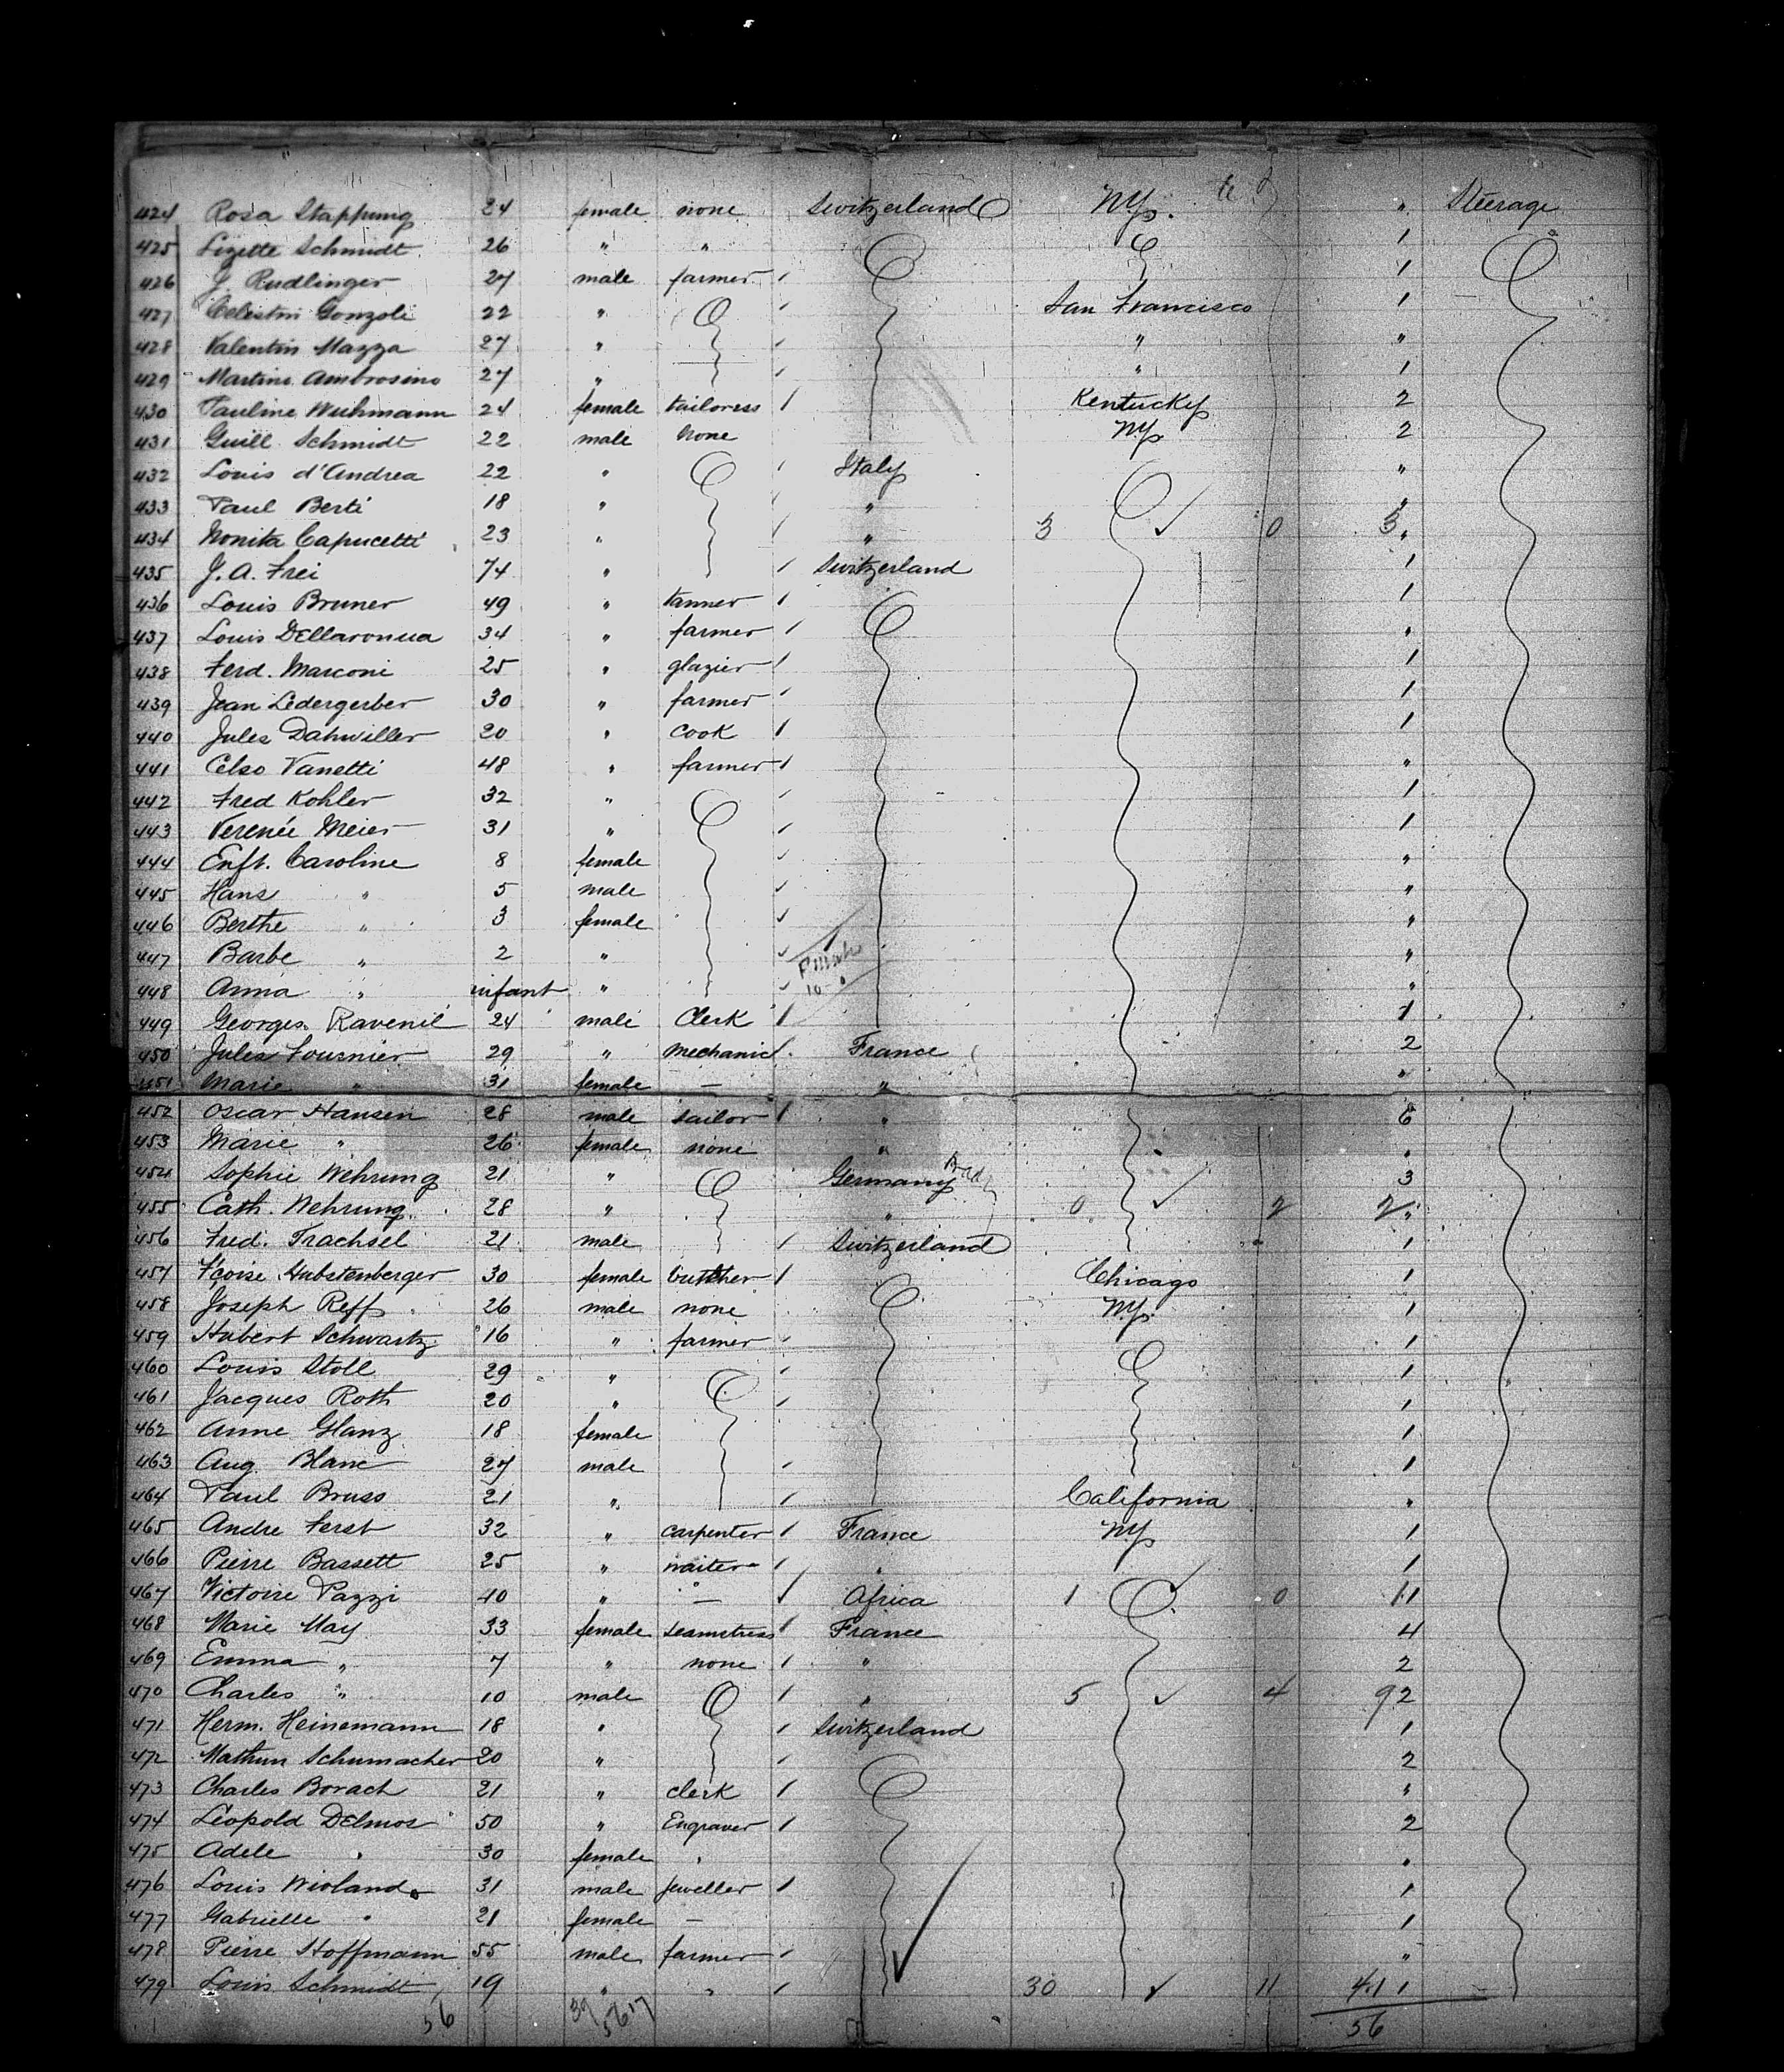 424 Rosa Stappung 24 female none Switzerland NY. " Steerage
425 Lizette Schmidt 26 " " 1
426 J. Rudlinger 27 male farmer 1
427 Celestin Gonzoli 22 " San Francisco 1
428 Valentin Mazza 27 " " "
429 Martino Ambrosino 27 " " 1
430 Pauline Wuhmann 24 female tailoress Kentucky 2
431 Guill Schmidt 22 male none NY 2
432 Louis d'Andrea 22 " Italy "
433 Paul Berti 18 " " "
434 Nonita Capucetti 23 " " 3 0 3 "
435 J. A. Frei 74 " Switzerland 1
436 Louis Bruner 49 " tanner 1
437 Louis Dellaronua 34 " farmer "
438 Ferd. Marconi 25 " glazier 1
439 Jean Ledergerber 30 " farmer 1
440 Jules Dahwiller 20 " cook 1
441 Celso Vanetti 48 " farmer "
442 Fred Kohler 32 " 1
443 Verenée Meier 31 " 1
444 Enft. Caroline 8 female "
445 Hans " 5 male "
446 Berthe " 3 female "
447 Barbe " 2 " "
448 Anna " infant " "
449 Georges Ravenié 24 male Clerk 1
450 Jules Fournier 29 " mechanic France 2
451 Marie " 31 female — " "
452 Oscar Hansen 28 male sailor " 6
453 Marie " 26 female none " "
454 Sophie Wehrung 21 " Germany 3
455 Cath. Wehrung 28 " " 0 2 2 "
456 Fred. Trachsel 21 male Switzerland 1
457 Fçoise Hubstenberger 30 female butcher Chicago 1
458 Joseph Reff 26 male none NY. 1
459 Hubert Schwartz 16 " farmer 1
460 Louis Stoll 29 " 1
461 Jacques Roth 20 " 1
462 Anne Glanz 18 female 1
463 Aug. Blanc 27 male 1
464 Paul Bruso 21 " California "
465 Andre Ferst 32 " carpenter France NY 1
466 Pierre Bassett 25 " waiter " 1
467 Victoire Pazzi 40 " — Africa 1 0 11
468 Marie May 33 female seamstress France 4
469 Emma " 7 " none " 2
470 Charles " 10 male " 5 4 92
471 Herm. Heinemann 18 " Switzerland 1
472 Mathun Schumacher 20 " 2
473 Charles Borach 21 " clerk "
474 Léopold Delmos 50 " Engraver 2
475 Adele " 30 female " "
476 Louis Wioland 31 male jeweller 1
477 Gabrielle " 21 female — 1
478 Pierre Hoffmann 55 male farmer "
479 Louis Schmidt 19 " " 30 11 41 1
56 39 17 56 56